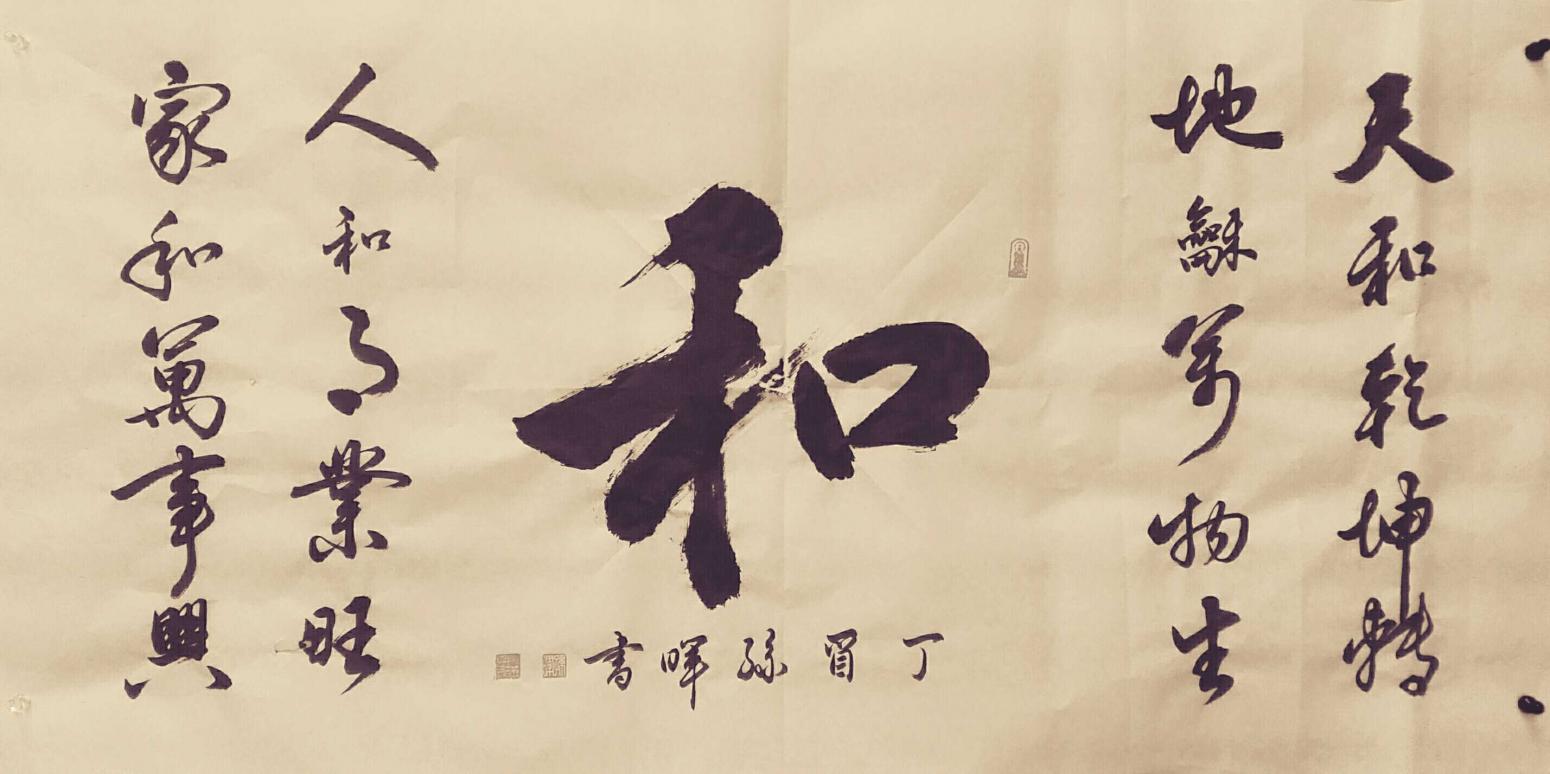 天和乾坤轉
地龢萬物生
和
丁酉孫暉書
人和百業旺
家和萬事興